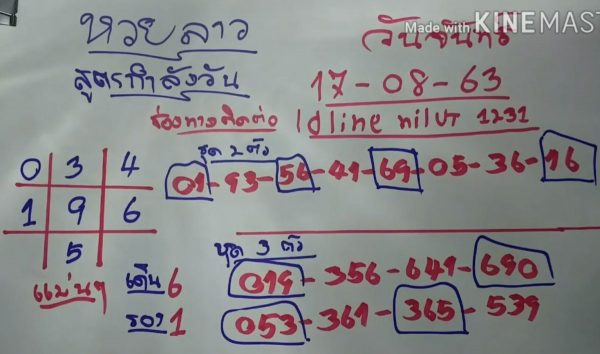 Made with KINEMAS
หวยลาว
วันจันทร์
สูตรกำลังวัน
17-08-63
ช่องทางติดต่อ Idline nilut 1231
ชุด 2 ตัว
01-93-56-41-69-05-36-16
0 3 4
1 9 6
5
แม่นๆ
เด่น 6
รอง 1
ชุด 3 ตัว
019-356-649-690
053-361-365-539